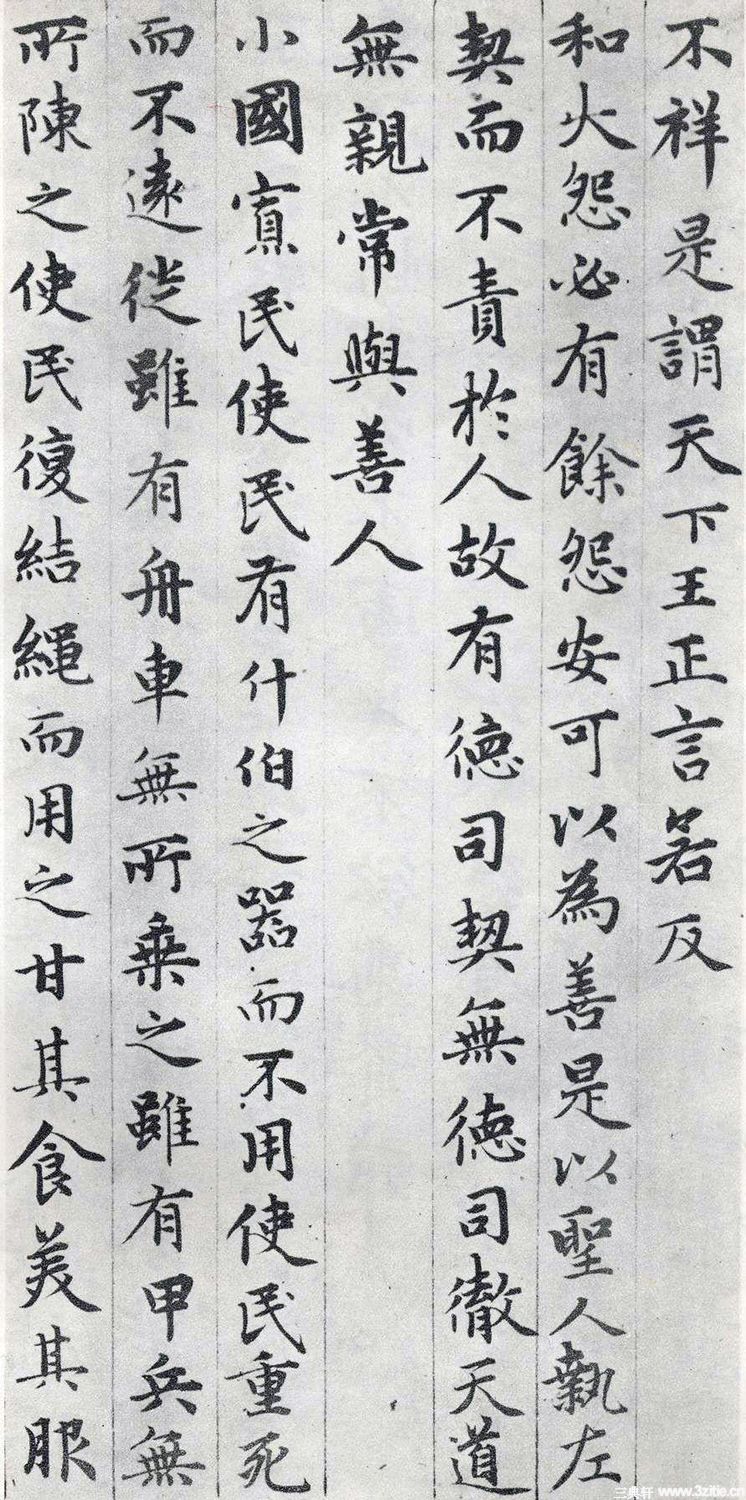 不祥是謂天下王正言若反
和大怨必有餘怨安可以為善是以聖人執左
契而不責於人故有德司契無德司徹天道
無親常與善人
小國寡民使民有什伯之器而不用使民重死
而不遠徙雖有舟車無所乘之雖有甲兵無
所陳之使民復結繩而用之甘其食美其服
三典轩 www.3zitie.cn